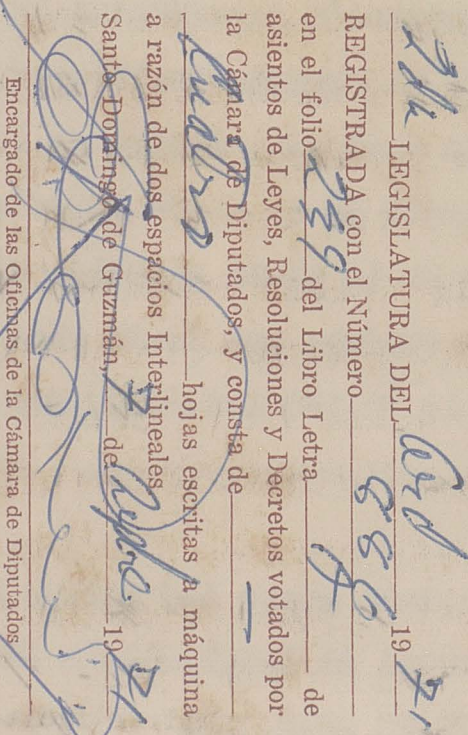 2da LEGISLATURA DEL Ord 1971
REGISTRADA con el Número 886
en el folio 239 del Libro Letra de
asientos de Leyes, Resoluciones y Decretos votados por
la Cámara de Diputados, y consta de
Cuatro hojas escritas a máquina
a razón de dos espacios Interlineales
Santo Domingo de Guzmán, 7 de 1971
Encargado de las Oficinas de la Cámara de Diputados